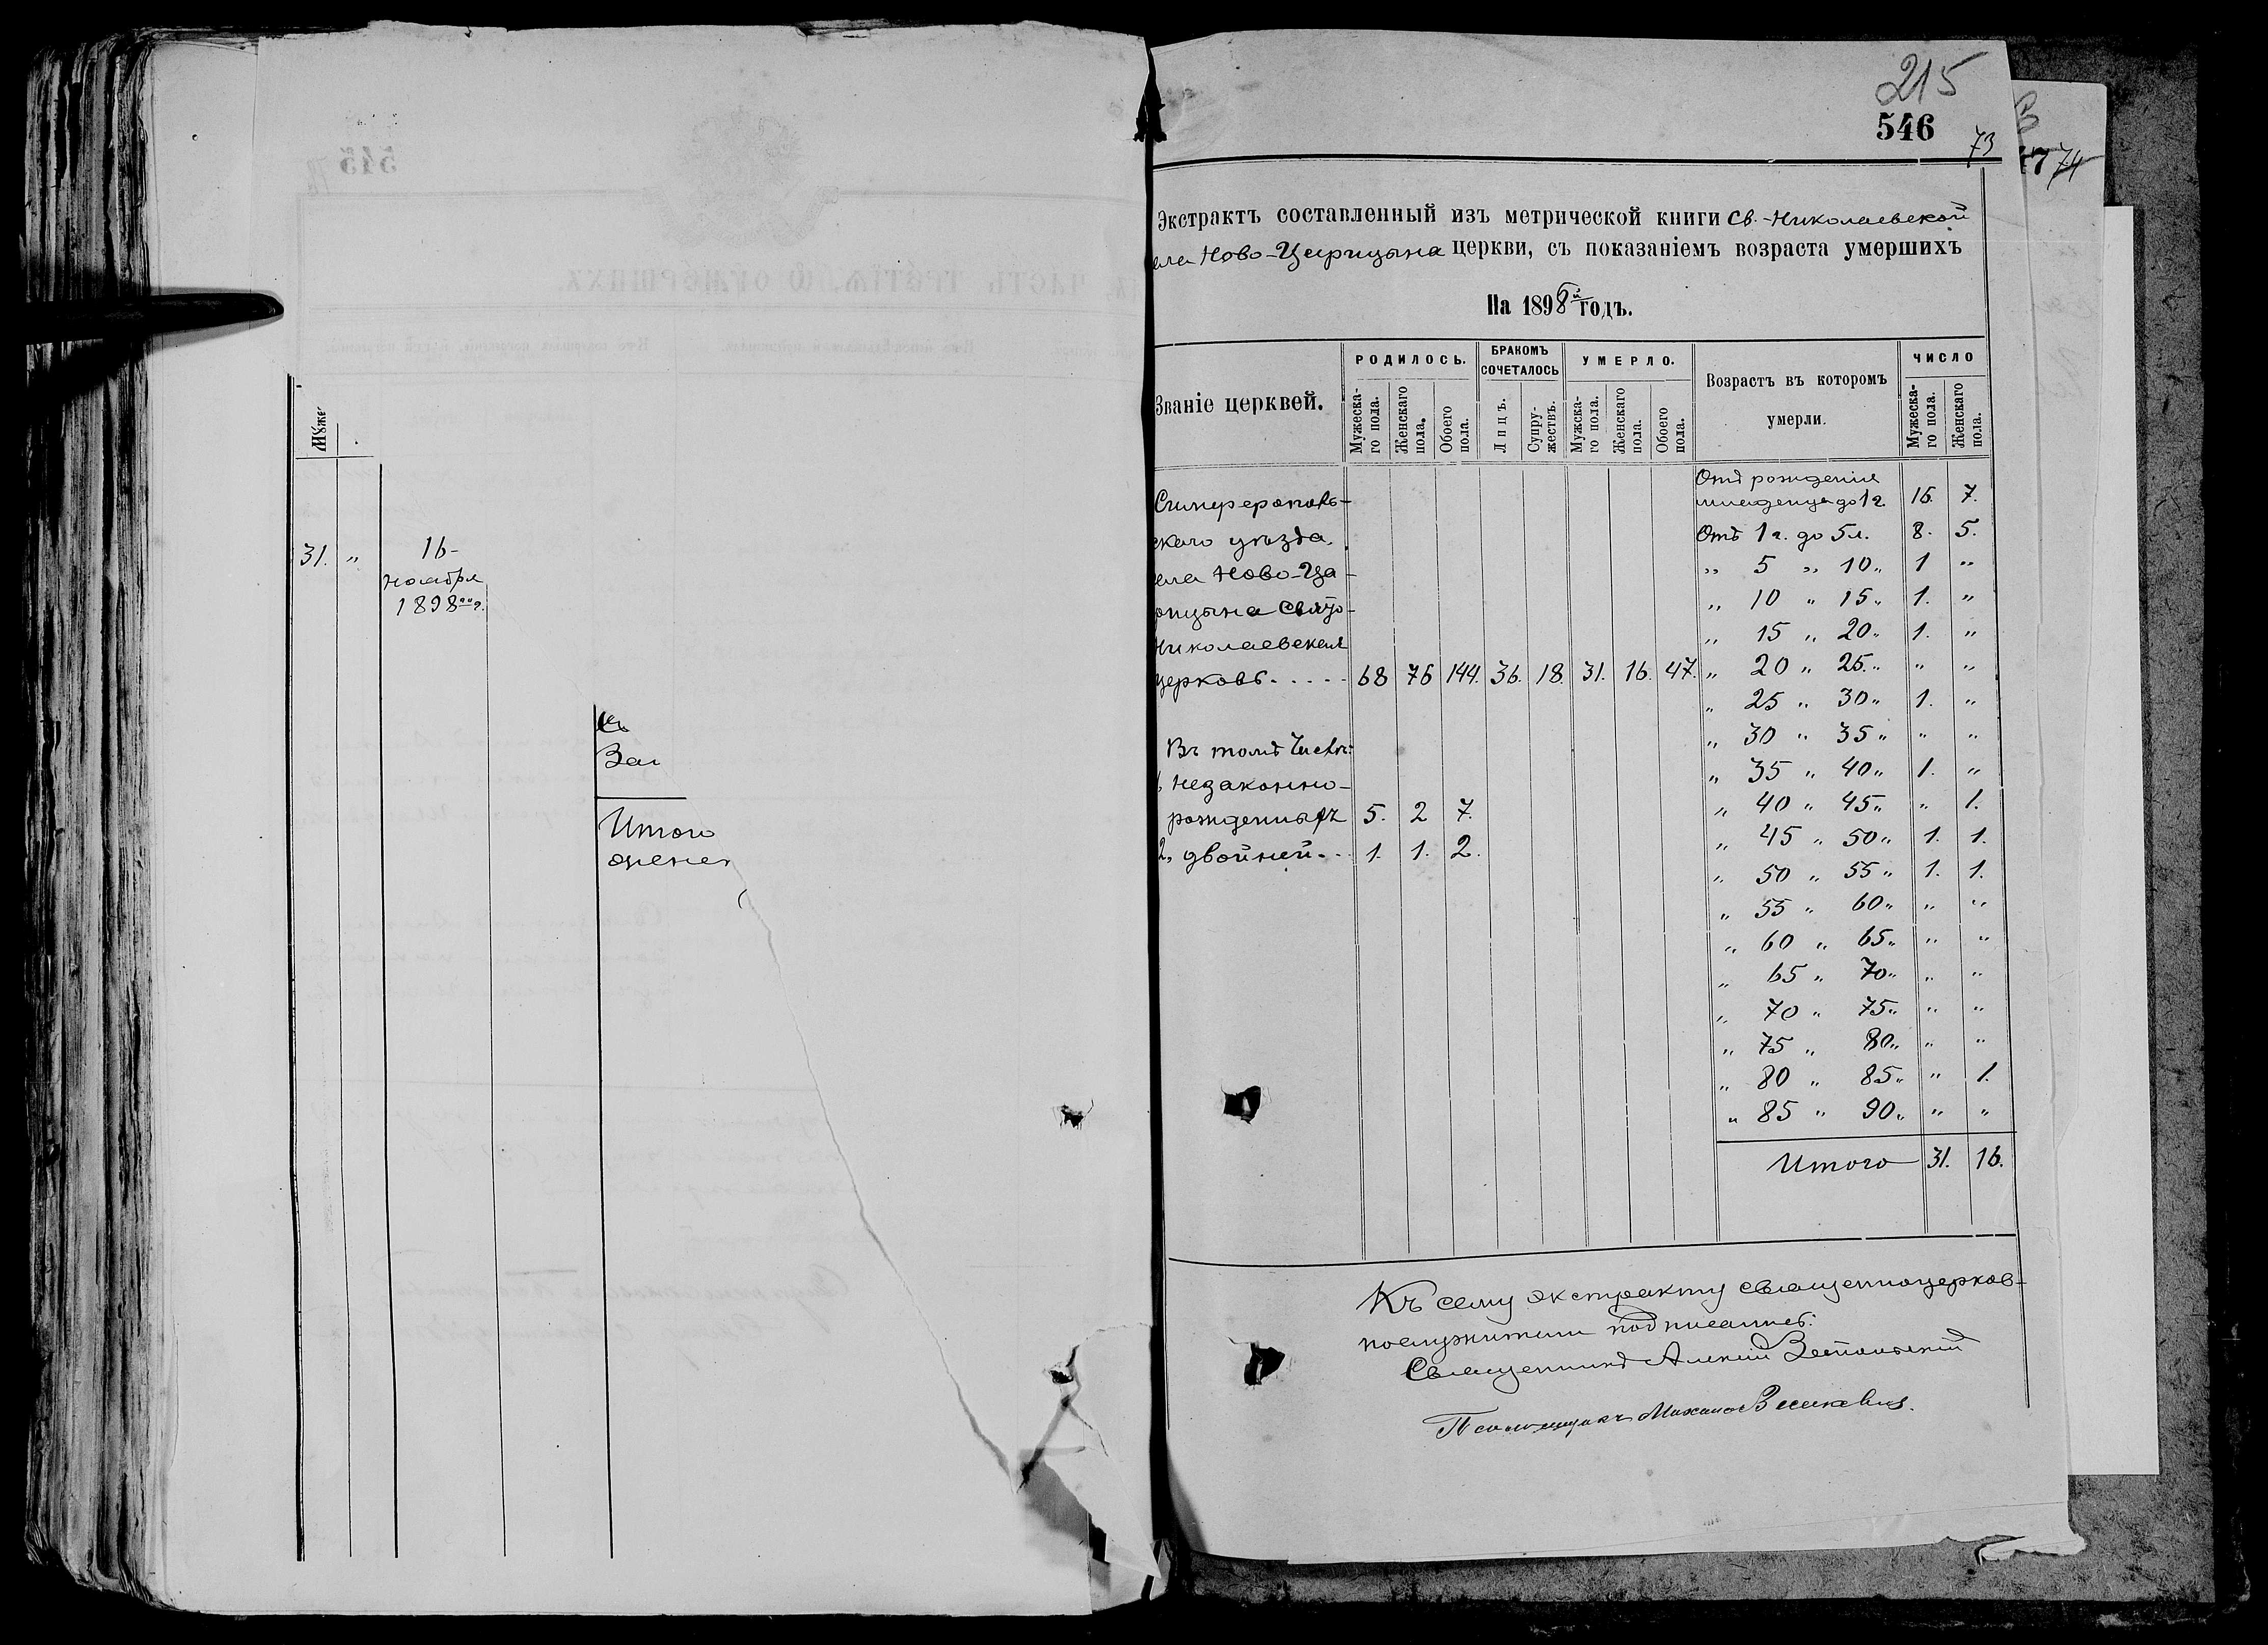 Мужес
31. " 16-
ноября
1898 го г.
Заг
Итого
215
546
73
74
Экстрактъ составленный изъ метрической книги Св.-Николаевской
ела Ново-Царицына церкви, съ показаніемъ возраста умершихъ
На 1898й годъ.
Званіе церквей. РОДИЛОСЬ. БРАКОМЪ СОЧЕТАЛОСЬ УМЕРЛО. Возрастъ въ которомъ умерли. ЧИСЛО
Мужеска-го пола. Женскаго пола. Обоего пола. Лицъ. Супру-жествъ. Мужска-го пола. Женскаго пола. Обоего пола. Мужеска-го пола. Женскаго пола.
Отъ рожденія
Симферополь- младенца до 1 г. 15. 7.
скаго уѣзда, Отъ 1 г. до 5 л. 8. 5.
ела Ново-Ца- " 5 " 10 " 1 "
рицына Свято- " 10 " 15 " 1. "
Николаевская " 15 " 20 " 1. "
церковь..... 68 76 144. 36. 18. 31. 16. 47. " 20 " 25 " " "
" 25 " 30 " 1. "
Въ томъ числѣ: " 30 " 35 " " "
незаконно- " 35 " 40 " 1. "
рожденныхъ 5. 2 7. " 40 " 45 " " 1.
2, двойней... 1. 1. 2. " 45 " 50 " 1. 1.
" 50 " 55 " 1. 1.
" 55 " 60 " " "
" 60 " 65 " " "
" 65 " 70 " " "
" 70 " 75 " " "
" 75 " 80 " " "
" 80 " 85 " " 1.
" 85 " 90 " " "
Итого 31. 16.
Къ сему экстракту священноцерков-
нослужители подписались:
Священникъ Алексій
Псаломщикъ Михаилъ